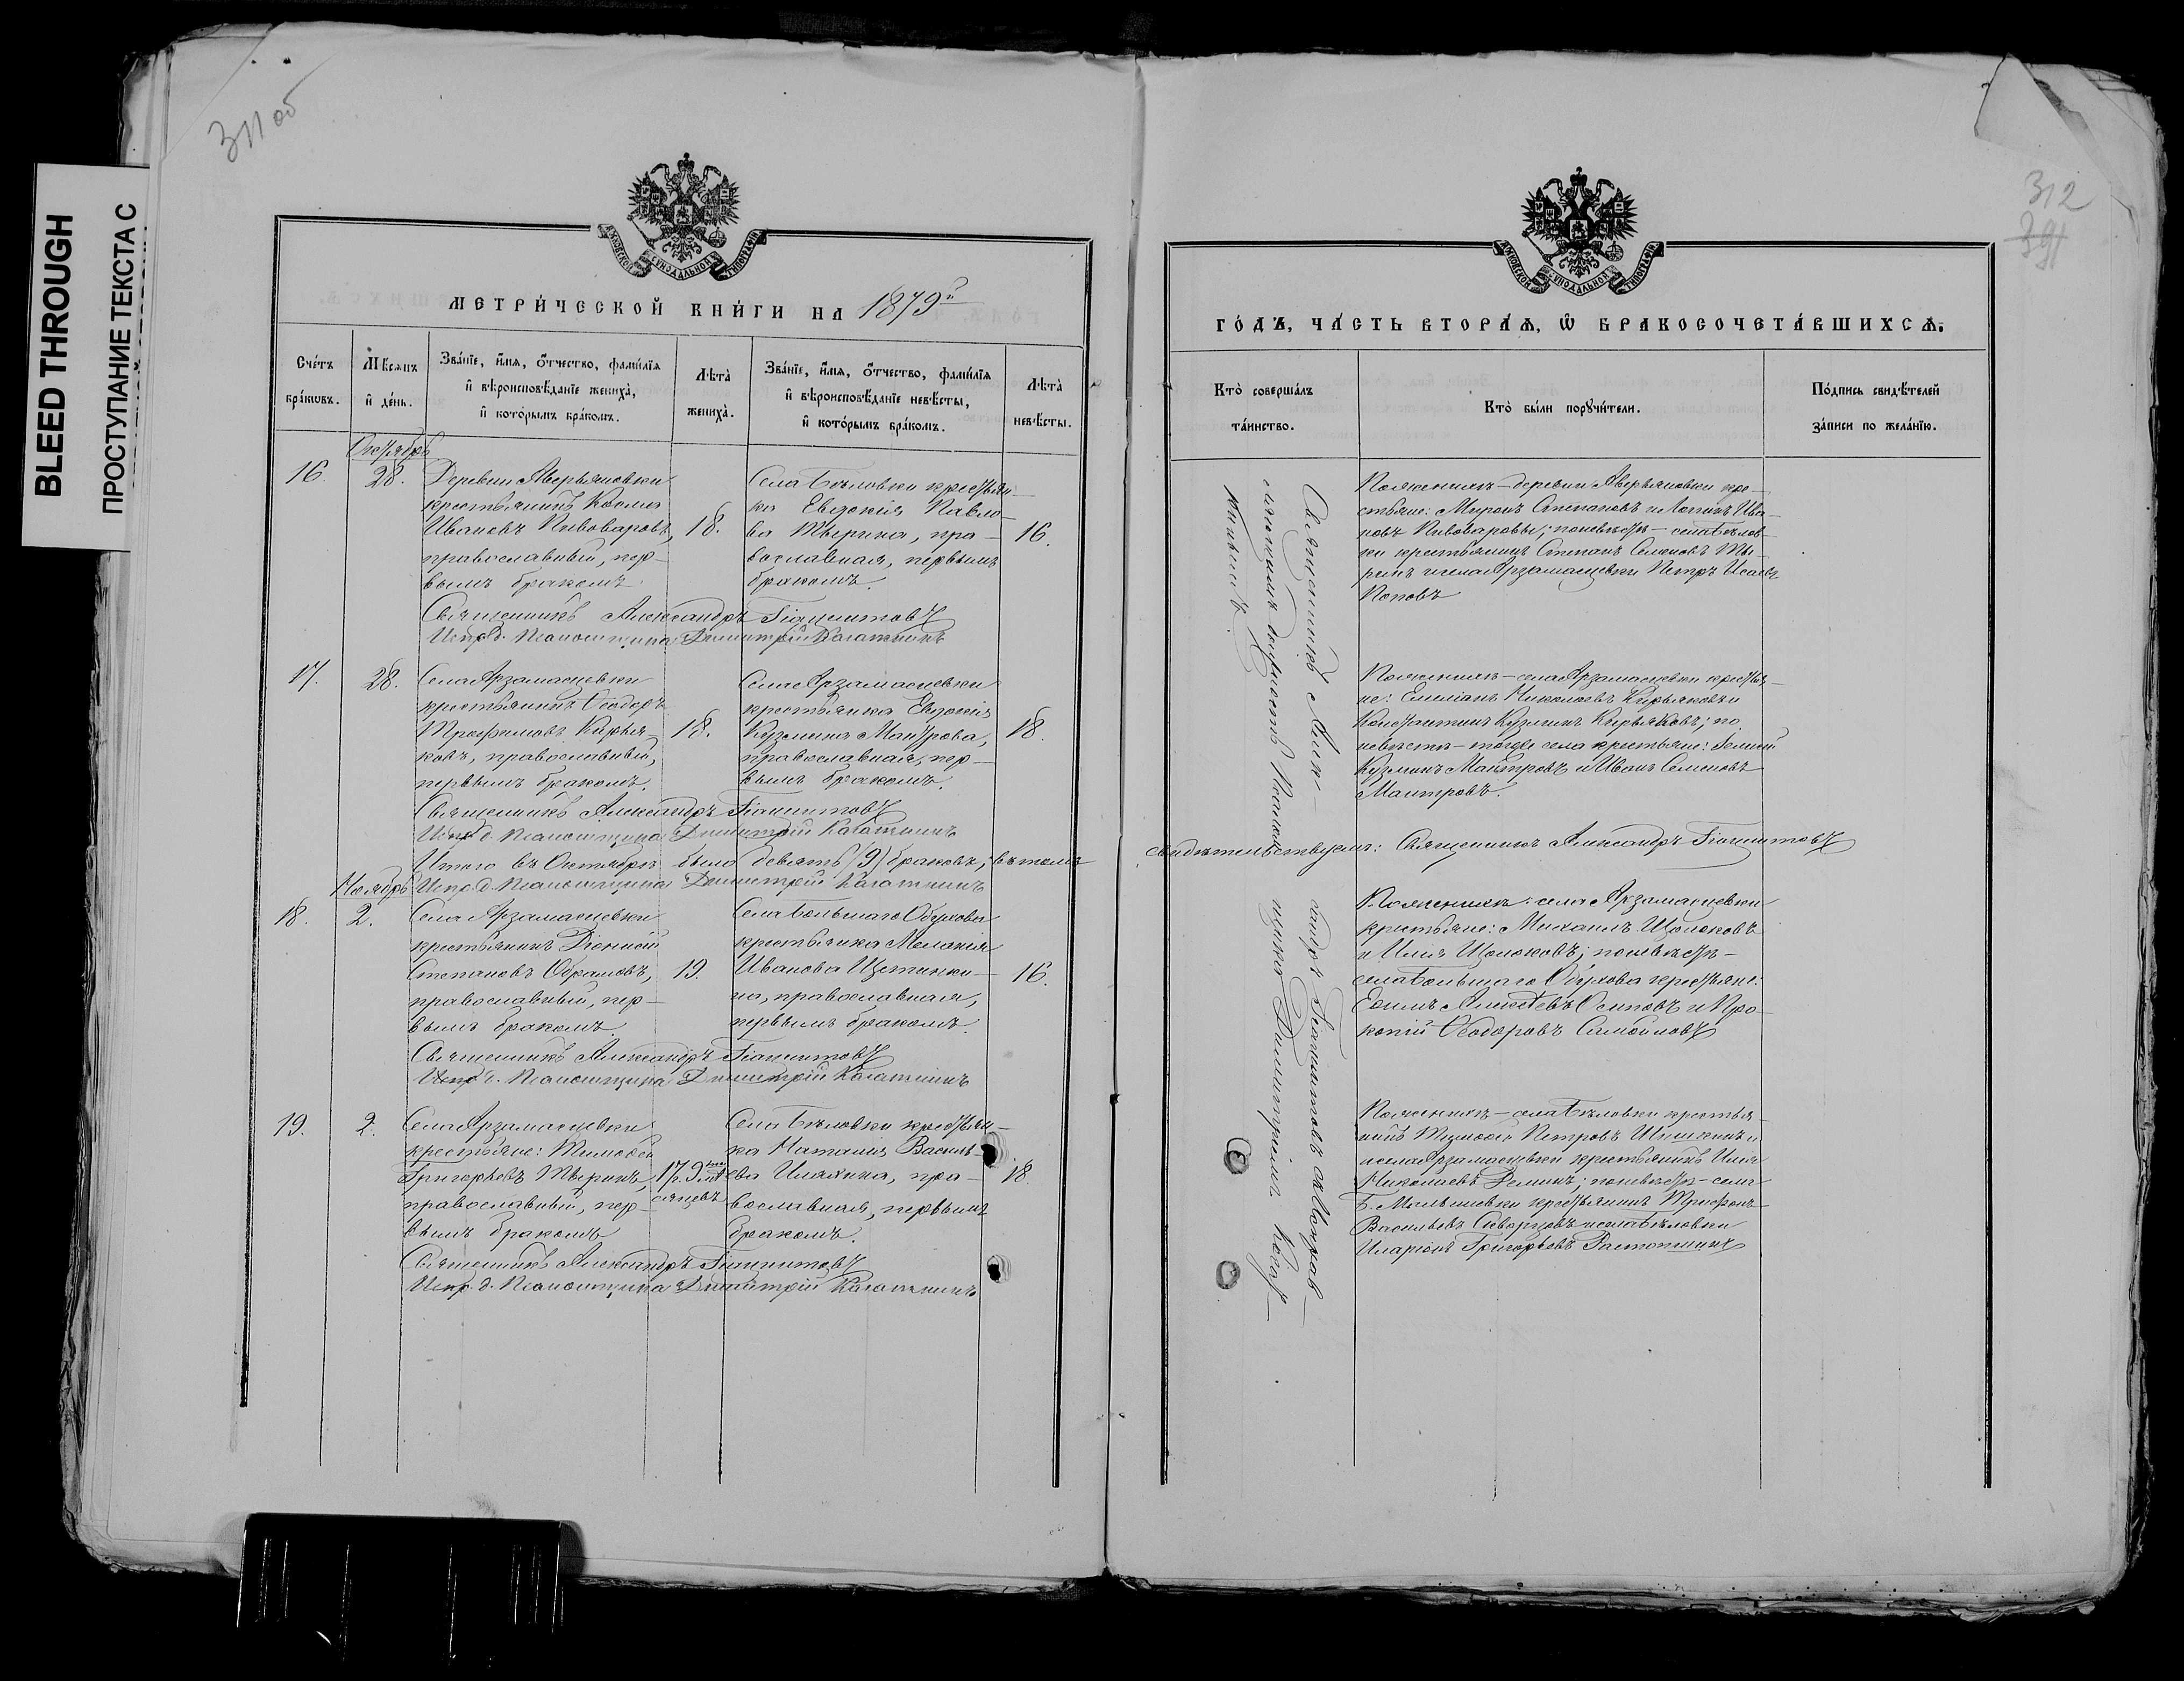 BLEED THROUGH
ПРОСТУПАНИЕ ТЕКСТА С
311 об
312
391
МЕТРИ́ЧЕСКОЙ КНИ́ГИ НА 1879й
Сче́тъ бра́кѡвъ.
Мѣ́сѧцъ и҆ де́нь.
Зва́нїе, и҆́мѧ, ѻ҆́тчество, фами́лїѧ
и҆ вѣроисповѣ́данїе жениха̀,
и҆ кото́рымъ бра́комъ.
Лѣта̀ жениха̀.
Зва́нїе, и҆́мѧ, ѻ҆́тчество, фами́лїѧ
и҆ вѣроисповѣ́данїе невѣ́сты,
и҆ кото́рымъ бра́комъ.
Лѣта̀ невѣ́сты.
Октябрь
16. 28.
Деревни Аверьяновки
крестьянинъ Косма
Ивановъ Пивоваровъ,
православный, пер-
вымъ бракомъ
18.
Села Бѣловки крестьян-
ка Евдокия Павло-
ва Тверина, пра-
вославная, первымъ
бракомъ.
16.
Священникъ Александръ Гіацинтовъ
Испр. д. Псаломщика Димитрій
17. 28.
Села Арзамасцевки
крестьянинъ Ѳеодоръ
Трофимовъ Кирья-
ковъ, православный,
первымъ бракомъ.
18.
Села Арзамасцевки
крестьянка Евдокія
Кузмина Маитрова,
православная, пер-
вымъ бракомъ.
18.
Священникъ Александръ Гіацинтовъ
Испр. д. Псаломщика Димитрій
Итого въ Октябрѣ было девять (9) браковъ; въ томъ
Ноябрь Испр. д. Псаломщика Димитрій
18. 2.
Села Арзамасцевки
крестьянинъ Діонисій
Степановъ Абрамовъ,
православный, пер-
вымъ бракомъ.
19.
Села Большаго Обухова
крестьянка Меланія
Иванова Щетинки-
на, православная,
первымъ бракомъ.
16.
Священникъ Александръ Гіацинтовъ
Испр. д. Псаломщика Димитрій
19. 2.
Села Арзамасцевки
крестьяне: Тимоѳей
Григорьевъ Тверинъ,
православный, пер-
вымъ бракомъ
17 р. 9 мѣ-
сяцевъ
Села Бѣловки крестьян-
ка Наталия Василь-
ева, пра-
вославная, первымъ
бракомъ.
18.
Священникъ Александръ Гіацинтовъ
Испр. д. Псаломщика Димитрій
ГО́ДЪ, ЧА́СТЬ ВТОРА́Ѧ, Ѽ БРАКОСОЧЕТА́ВШИХСѦ.
Кто̀ соверша́лъ та́инство.
Кто̀ бы́ли порꙋчи́тели.
По́дпись свидѣ́телей
за́писи по жела́нїю.
Священникъ Алек-
сандръ Гіацинтовъ
должность Псалом-
щика Димитріемъ
По женихѣ – деревни Аверьяновки кре-
стьяне: Миронъ Степановъ и Логинъ Ива-
новъ Пивоваровы; по невѣстѣ – села Бѣлов-
ки крестьянинъ Степанъ Семеновъ Тве-
ринъ и села Арзамасцевки Петръ Исаевъ
Поповъ
По женихѣ – села Арзамасцевки крестья-
не: Емеліанъ Николаевъ Кирьяковъ и
Константинъ Кузминъ Кирьяковъ; по
невѣстѣ – того же села крестьяне:
Кузминъ Маитровъ и Иванъ Семеновъ
Маитровъ.
свидѣтельствуемъ: Священникъ Александръ Гіацинтовъ
По женихѣ: села Арзамасцевки
крестьяне: Михаилъ Щолоковъ
и Илия Щолоковъ; по невѣстѣ –
села Большаго Обухова крестьяне:
Ефимъ Алексѣевъ Осиповъ и Про-
копій Ѳеодоровъ Самойловъ
По женихѣ – села Бѣловки крестья-
нинъ Тимоѳей Петровъ Шишкинъ и
и села Арзамасцевки крестьянинъ Илия
Николаевъ; по невѣстѣ – села
Б. Малышевки крестьянинъ Трифонъ
Васильевъ Скворцовъ и села Бѣловки
Иларіонъ Григорьевъ Растопшинъ